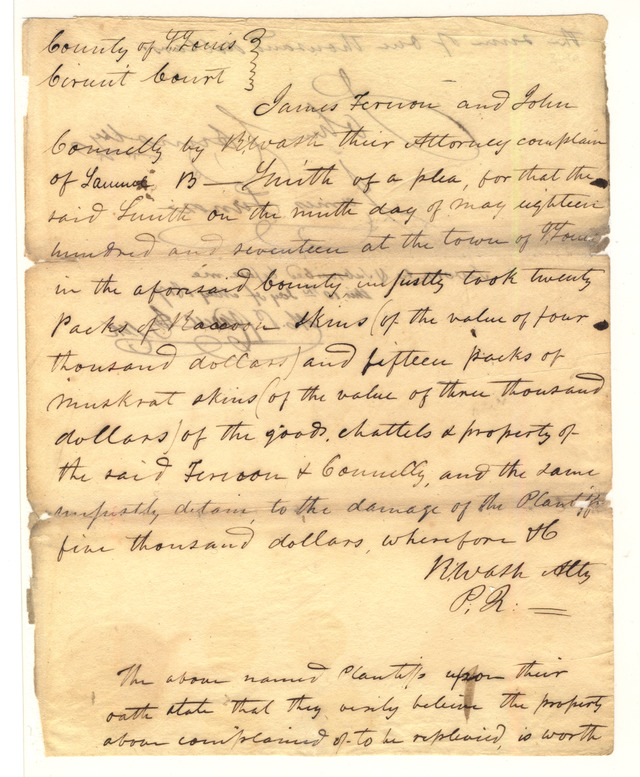 County of St Louis
Circuit Court
James Fernon and John
Connelly by R. Wash their Attorney complain
of B — Smith of a plea, for that the
said Smith on the ninth day of may eighteen
hundred and seventeen at the town of St Louis
in the aforesaid County unjustly took twenty
Packs of Raccoon skins (of the value of four
thousand dollars) and fifteen packs of
muskrat skins (of the value of three thousand
dollars) of the goods, chattels & property of
the said & Connelly, and the same
unjustly detain, to the damage of the Plantiffs
five thousand dollars, wherefore &c
R. Wash Atty
P. Q. —
The above named Plantiffs upon their
oath state that they verily believe the property
above complained of to be replevied, is worth